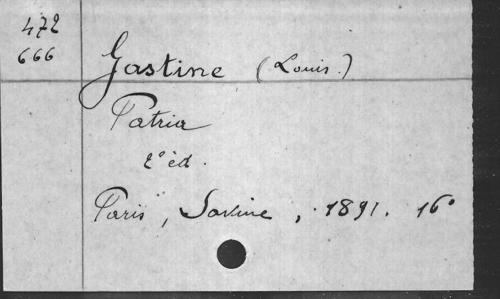 472
666
Gastine (Louis.)
Patria
2° éd.
Paris, Savine, 1891. 16°